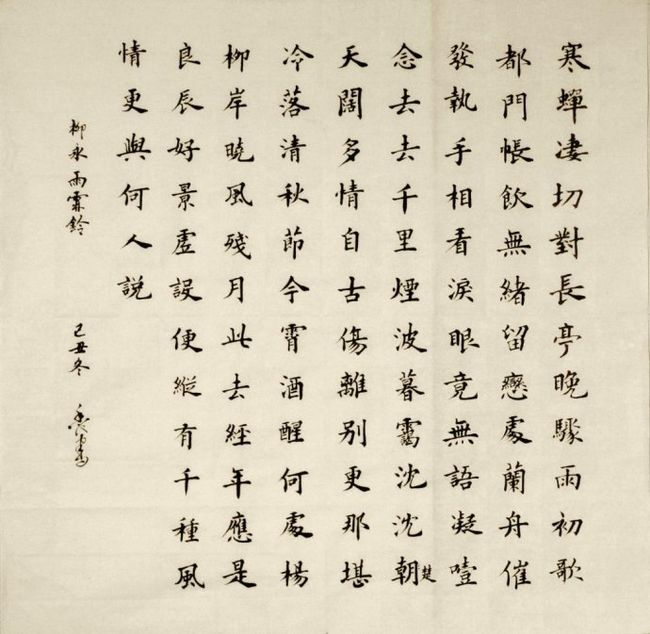 寒蟬凄切對長亭晚驟雨初歌
都門帳飲無緒留戀處蘭舟催
發執手相看淚眼竟無語凝噎
念去去千里煙波暮靄沈沈朝楚
天闊多情自古傷離別更那堪
冷落清秋節今宵酒醒何處楊
柳岸曉風殘月此去經年應是
良辰好景虛設便縱有千種風
情更與何人説
柳永雨霖鈴 己丑冬